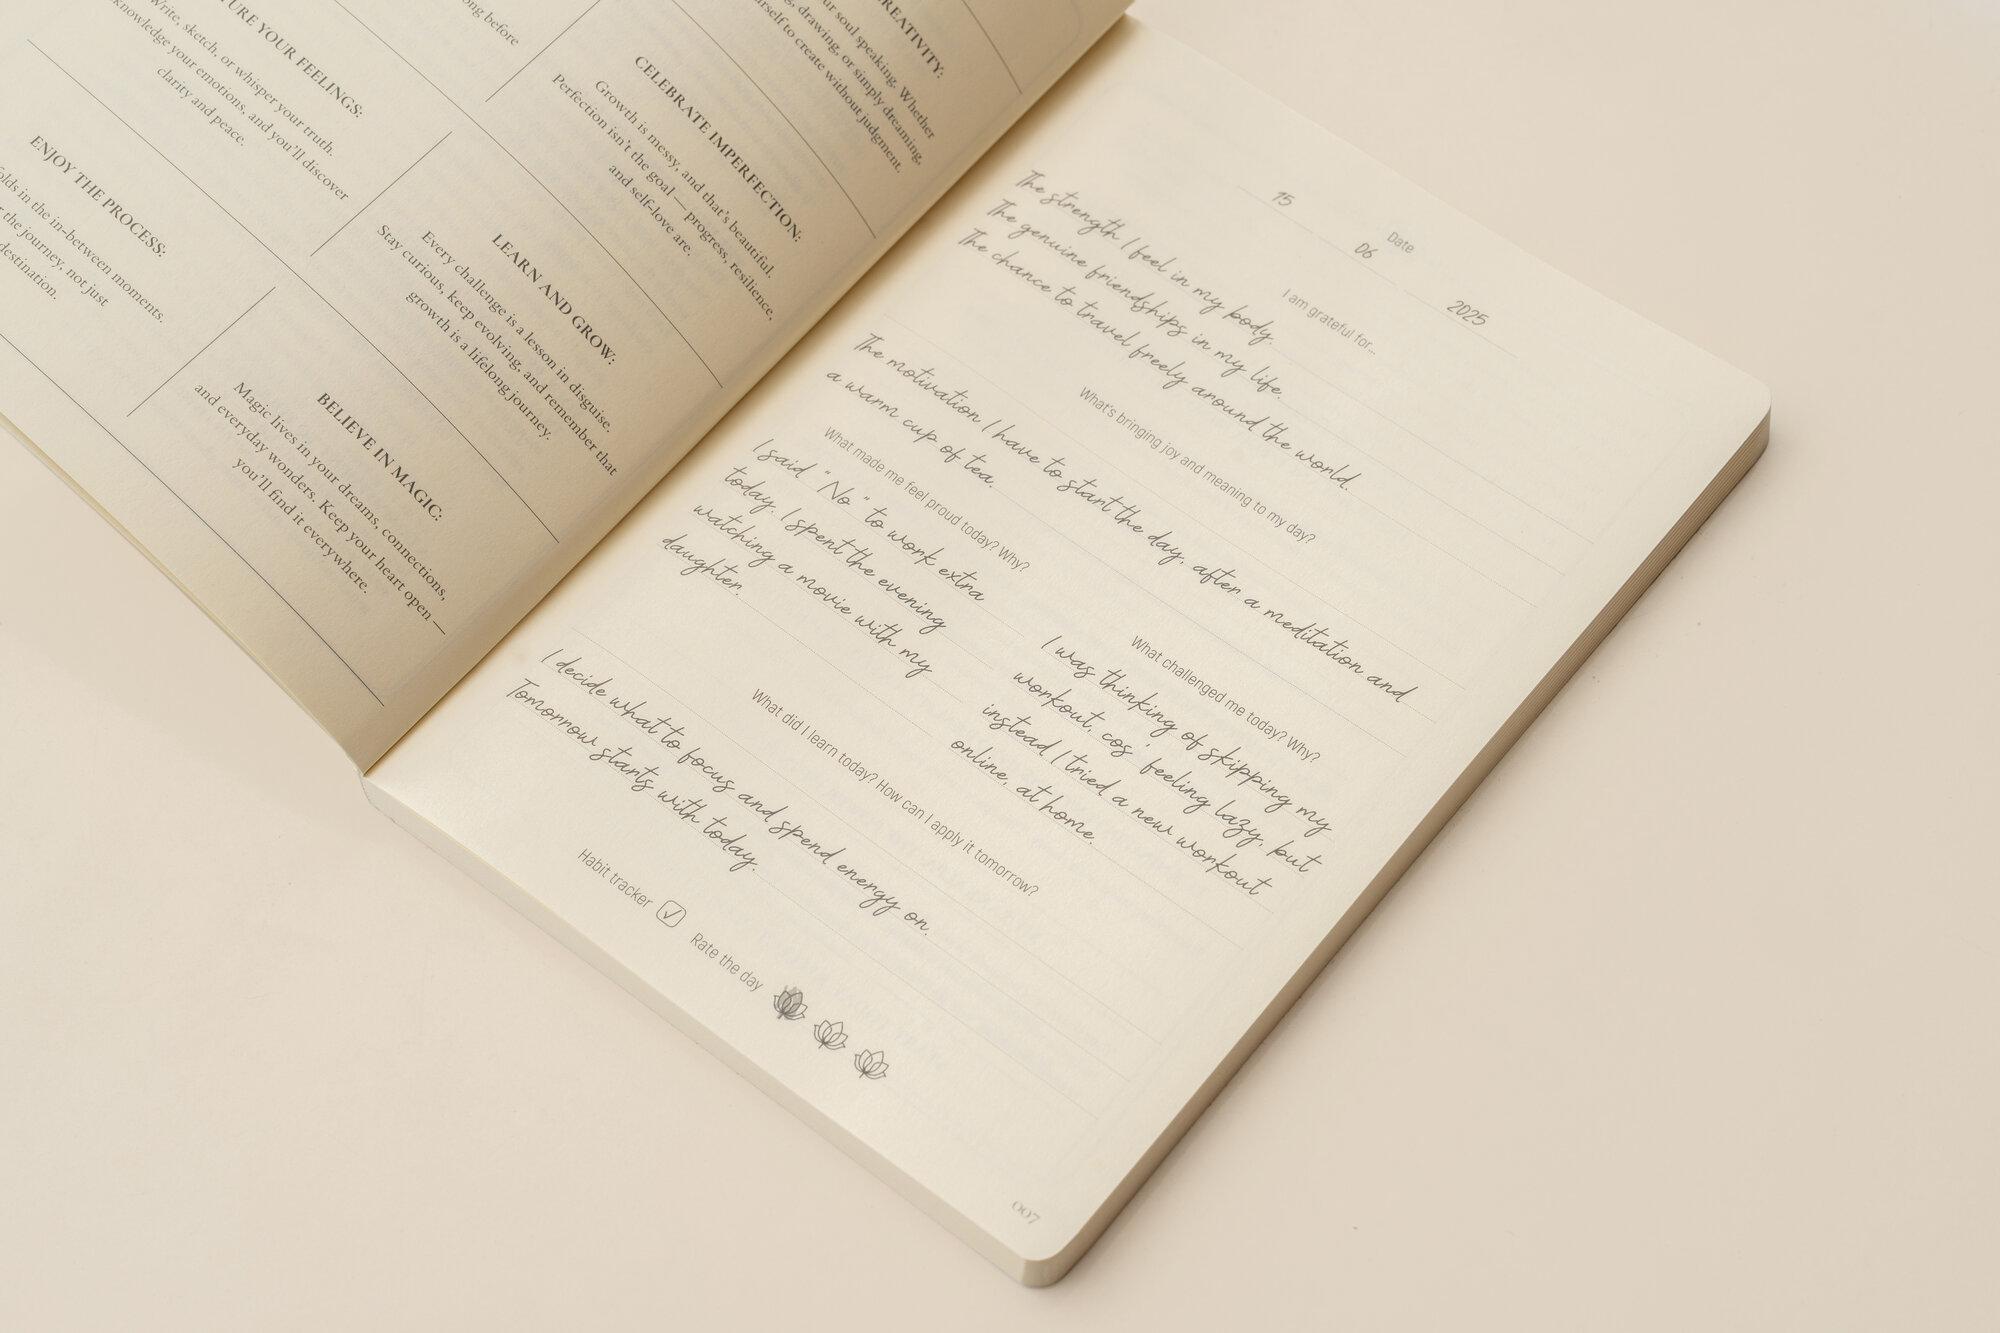 CREATIVITY:
ur soul speaking. Whether
g, drawing, or simply dreaming,
rself to create without judgment.
ng before
CELEBRATE IMPERFECTION:
Growth is messy, and that's beautiful.
Perfection isn't the goal — progress, resilience,
and self-love are.
URE YOUR FEELINGS:
Write, sketch, or whisper your truth.
knowledge your emotions, and you'll discover
clarity and peace.
LEARN AND GROW:
Every challenge is a lesson in disguise.
Stay curious, keep evolving, and remember that
growth is a lifelong journey.
ENJOY THE PROCESS:
olds in the in-between moments.
r the journey, not just
destination.
BELIEVE IN MAGIC:
Magic lives in your dreams, connections,
and everyday wonders. Keep your heart open —
you'll find it everywhere.
15 06 2025
Date
I am grateful for...
The strength I feel in my body.
The genuine friendships in my life.
The chance to travel freely around the world.
What's bringing joy and meaning to my day?
The motivation I have to start the day, after a meditation and
a warm cup of tea.
What made me feel proud today? Why?
I said "No" to work extra
today. I spent the evening
watching a movie with my
daughter.
What challenged me today? Why?
I was thinking of skipping my
workout, cos' feeling lazy, but
instead I tried a new workout
online, at home.
What did I learn today? How can I apply it tomorrow?
I decide what to focus and spend energy on.
Tomorrow starts with today.
Habit tracker ✓ Rate the day
007